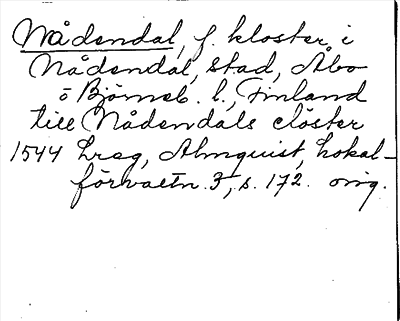 Nådendal, f. kloster, i
Nådendal, stad, Åbo
o Björneb. l., Finland
till Nådendals clöster
1544 Lreg, Almquist, Lokal-
förvaltn. 3, s. 172. orig.